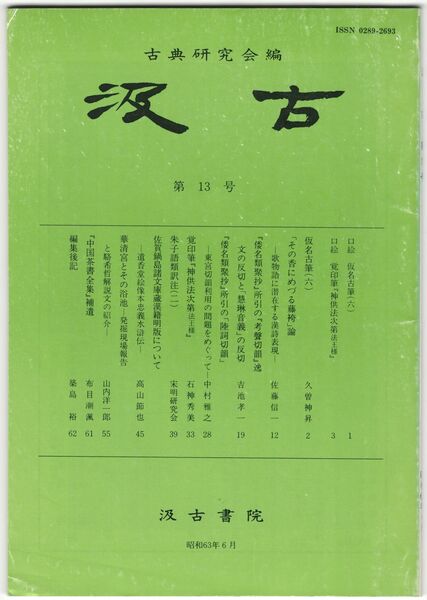 ISSN 0289-2693
古典研究会編
汲古
第 13 号
口絵 仮名古筆(六) 1
口絵 覚印筆『神供法次第法王様』 3
仮名古筆(六) 久曽神昇 2
「その香にめづる藤袴」論
―歌物語に潜在する漢詩表現― 佐藤信一 12
『倭名類聚抄』所引の『考聲切韻』逸
文の反切と『慧琳音義』の反切 吉池孝一 19
『倭名類聚抄』所引の「陸詞切韻」
―東宮切韻利用の問題をめぐって― 中村雅之 28
覚印筆『神供法次第法王様』 石神秀美 33
朱子語類訳注(二) 宋明研究会 39
佐賀鍋島諸文庫蔵漢籍明版について
―遺香堂絵像本忠義水滸伝― 高山節也 45
華清宮とその浴池―発掘現場報告
と駱希哲解説文の紹介― 山内洋一郎 55
『中国茶書全集』補遺 布目潮渢 61
編集後記 築島裕 62
汲古書院
昭和63年6月